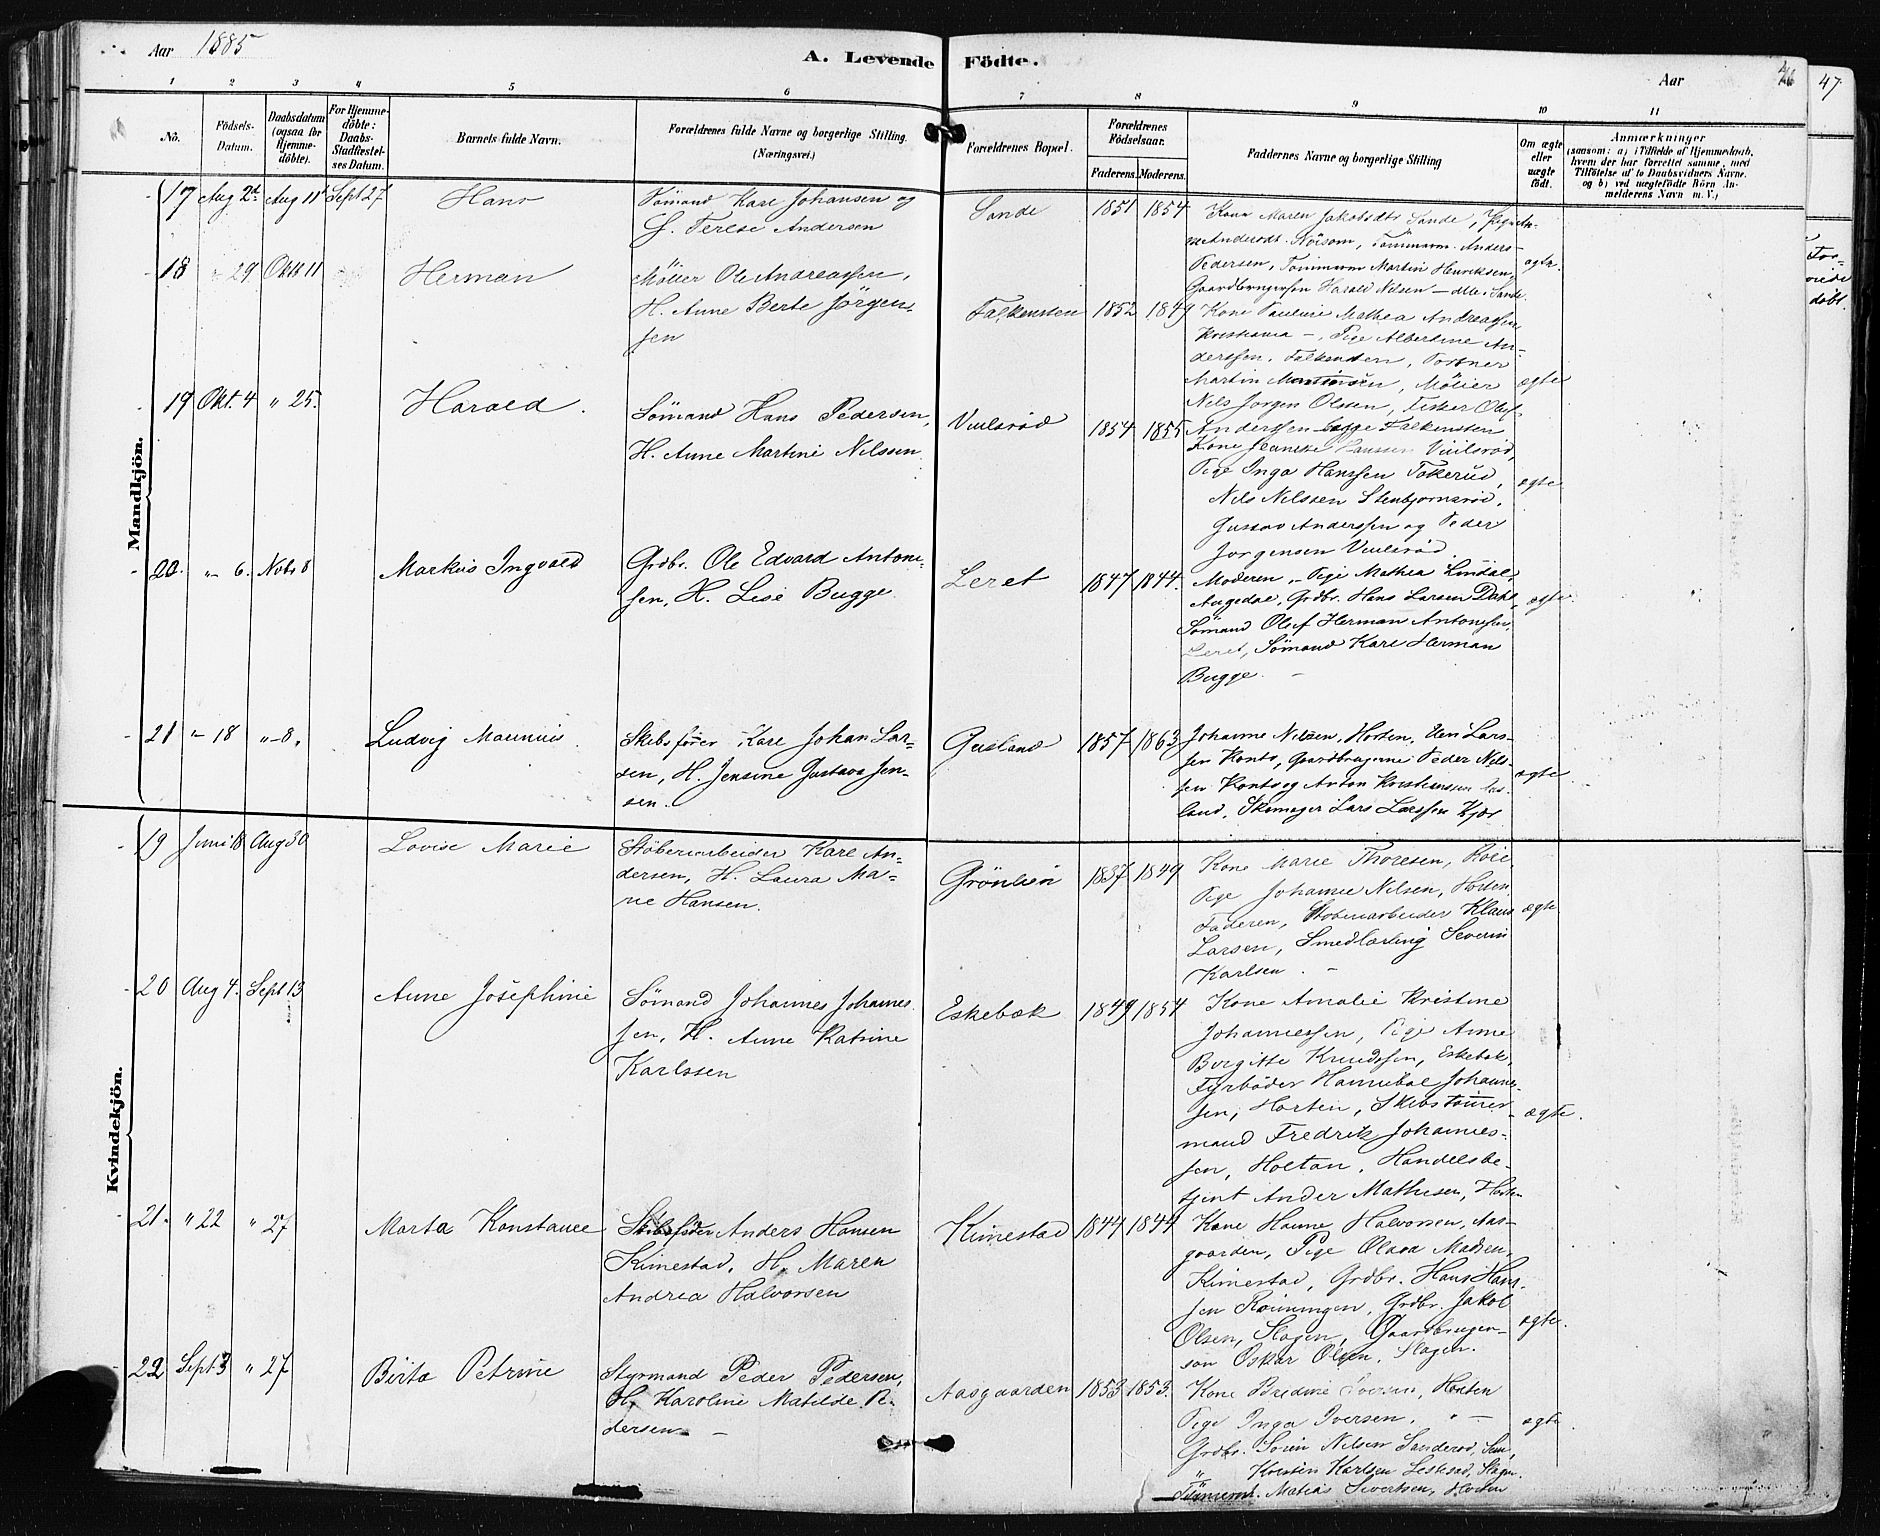 Aar 1885
A. Levende Födte.
Aar
46
47
1 2 3 4 5 6 7 8 9 10 11
No.
Födsels-Datum.
Daabsdatum (ogsaa for Hjemme-döbte).
For Hjemme-döbte: Daabs-Stadfæstel-ses Datum.
Barnets fulde Navn.
Forældrenes fulde Navne og borgerlige Stilling. (Næringsvei.)
Forældrenes Bopæl.
Forældrenes Födselsaar.
Faderens. Moderens.
Faddernes Navne og borgerlige Stilling
Om ægte eller uægte födt.
Anmærkninger
(saasom: a) i Tilfælde af Hjemmedaab,
hvem der har forrettet samme, med
Tilföielse af to Daabsvidners Navne.
og b) ved uægtefödte Börn An-
melderens Navn m. V.)
Mandkjön.
17 Aug 2d Aug 11t Sept 27 Hans
Sömand Karl Johansen og
H. Terese Andersen
Sande 1851 1854
Kone Maren Jakobsdtr Sande, Pige An-
Andersdt. Tömmerm. Anders
Pedersen, Tömmerm Martin Henriksen,
Gaardbrugersön Harald Nilsen — alle Sande
ægte.
18 " 29 Oktb 11 Herman
Möller Ole Andreassen,
H. Anne Berte Jörgen-
sen
Falkensten 1852 1849
Kone Pauline Mathea Andreassen
Kristiania —, Pige Albertine An-
derssen, Falkensten, Portner
Martin Martinsen, Möller
Nils Jorgen Olsen, Fisker Oluf
Anderssen begge Falkensten
ægte
19 Okt. 4 " 25. Harald.
Sömand Hans Pedersen,
H. Anne Martine Nilssen
Viulsröd 1854 1855
Kone Hanssen Viulsröd,
Pige Inga Hanssen Tokerud,
Nils Nilssen Stenbjornsröd,
Gustav Anderssen og Peder
Jorgensen Viulsröd
ægte
20. " 6. Novbr 8 Markus Ingvald
Grdbr. Ole Edvard Antoni-
sen, H. Lise Bugge
Leret 1847 1844.
Moderen, — Pige Mathea Lindal,
Augedal, Grdbr. Hans Larsen Dahl,
Sömand Oluf Herman Antonssen,
Leret, Sömand Karl Herman
Bugge. —
ægte.
21 " 18 " 8. Ludvig Maurius
Skibsförer Karl Johan Lar-
sen, H. Jensine Gustava Jen-
sen.
Gusland 1857 1863
Johanne Nilsen, Horten, Lars-
sen Ronto, Gaardbrugerne Peder Nils-
sen Ronto og Anton Kristianssen Gus-
land, Skomager Lars Larssen Kjær
ægte
Kvindekjön.
19 Juni 18 Aug 30 Lovise Marie
Stöberiarbeider Karl An-
dersen, H. Laura Ma-
rie Hansen.
Grönlien 1837 1849
Kone Marie Thoresen,
Pige Johanne Nilsen, Horten
Faderen, Stöberiarbeider Klaus
Larsen, Smedlærling Severin
Karlsen. —
ægte
20 Aug 4. Sept 13 Anne Josephine
Sömand Johannes Johannes-
sen, H. Anne Katrine
Karlssen
Eskebæk 1849 1854
Kone Amalie Kristine
Johannessen, Pige Anne
Borgitte Knudssen, Eskebæk,
Fyrböder Hannibal Johannes-
sen, Horten, Skibstömmer-
mand Fredrik Johannes-
sen, Holtan, Handelsbe-
tjent Ander Mathisen, Horten
ægte.
21. " 22 " 27 Marta Konstance
Skibsförer Anders Hansen
Kimestad, H. Maren
Andrea Halvorsen
Kimestad 1844 1844
Kone Hanne Halvorsen, Aas-
gaarden, Pige Olava Madsen,
Kimestad, Grdbr. Hans Han-
sen Rönningen, Grdbr. Jakob
Olsen, Slagen, Gaardbruger-
son Oskar Olsen, Slagen.
ægte
22 Sept 3 " 27 Berta Petrine
Styrmand Peder Pedersen,
H. Karoline Matilde Pe-
dersen —
Aasgaarden 1853 1853.
Kone Bredine Iversen, Horten
Pige Inga Iversen, " —
Grdbr. Sörin Nilsen Sanderöd, Sem,
" Kristen Karlsen Slagen.
Tömmerm. Matias Sivertsen, Horten
ægte